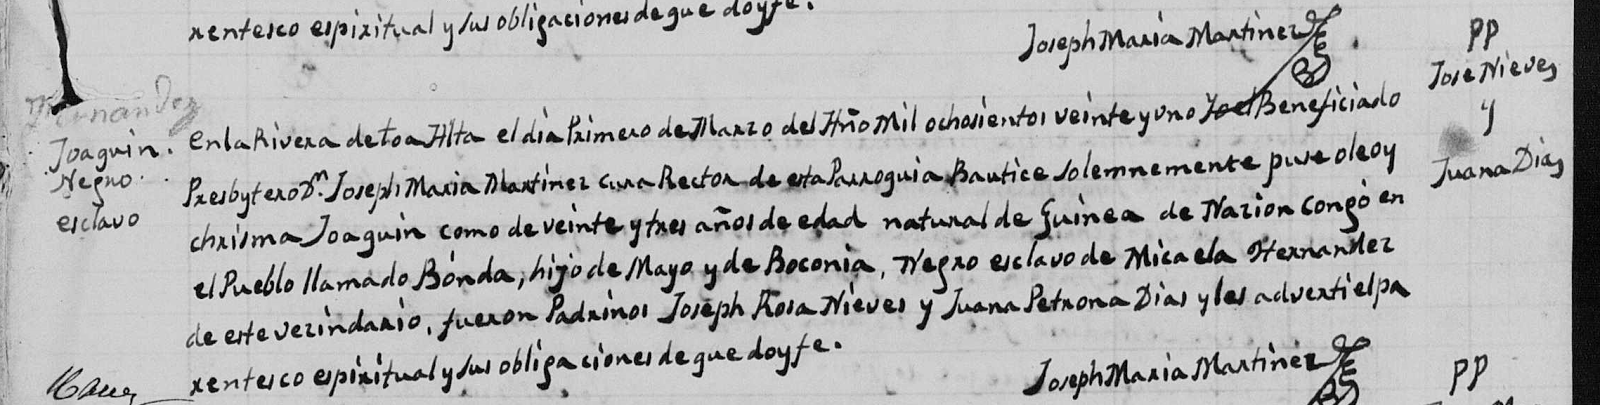 rentesco espiritual y sus obligaciones de que doy fe.
Joseph Maria Martinez
PP
Jose Nieves
y
Juana Dias
Hernandez
Joaquin.
Negro.
esclavo
en la Rivera de toa Alta el dia Primero de Marzo del Año Mil ochosientos veinte y uno Yo el Beneficiado
Presbytero Dn. Joseph Maria Martinez cura Rector de esta Parroquia Bautice solemnemente puse oleo y
chrisma Joaquin como de veinte y tres años de edad natural de Guinea de Nazion Congó en
el Pueblo llamado Bónda, hijo de Mayo y de Boconia, Negro esclavo de Micaela Hernandez
de este vezindario, fueron Padrinos Joseph Rosa Nieves y Juana Petrona Dias y les adverti el pa
rentesco espiritual y sus obligaciones de que doy fe.
Joseph Maria Martinez
PP